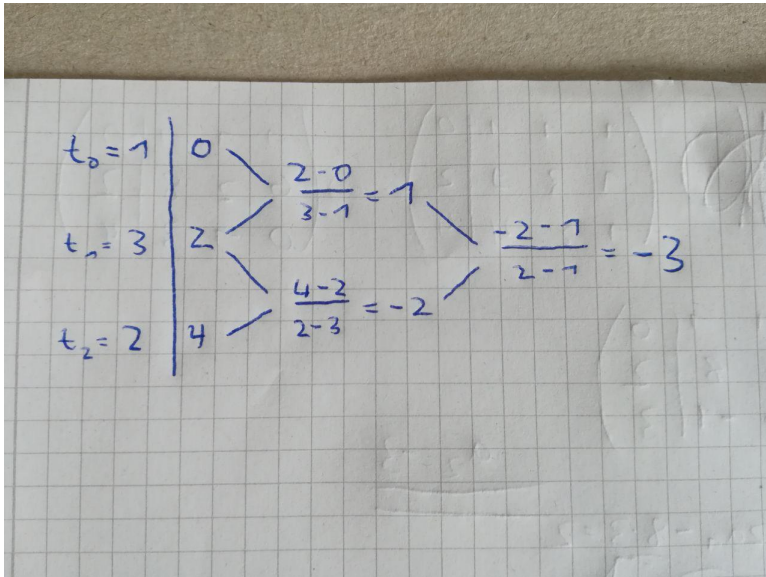 t₀ = 1 | 0
(2-0)/(3-1) = 1
t₁ = 3 | 2
(-2-1)/(2-1) = -3
(4-2)/(2-3) = -2
t₂ = 2 | 4